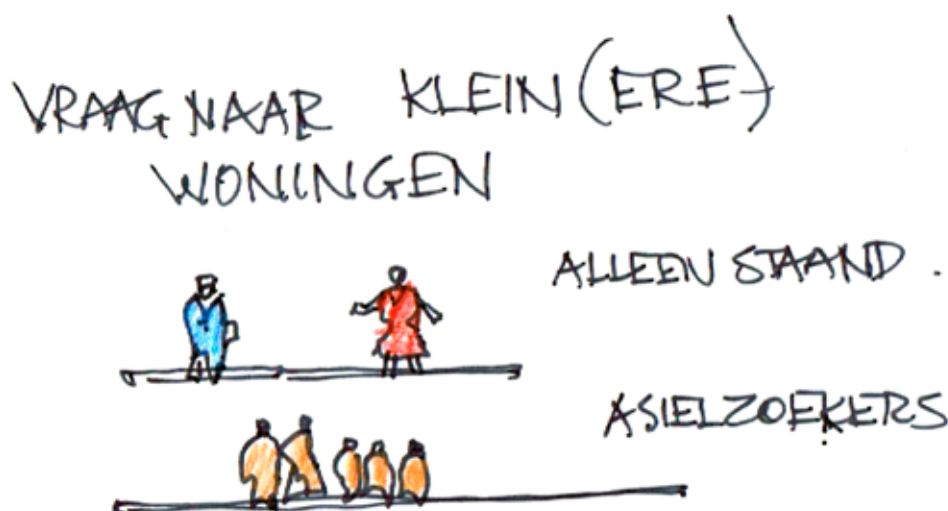 VRAAG NAAR KLEIN(ERE)
WONINGEN
ALLEEN STAAND.
ASIELZOEKERS